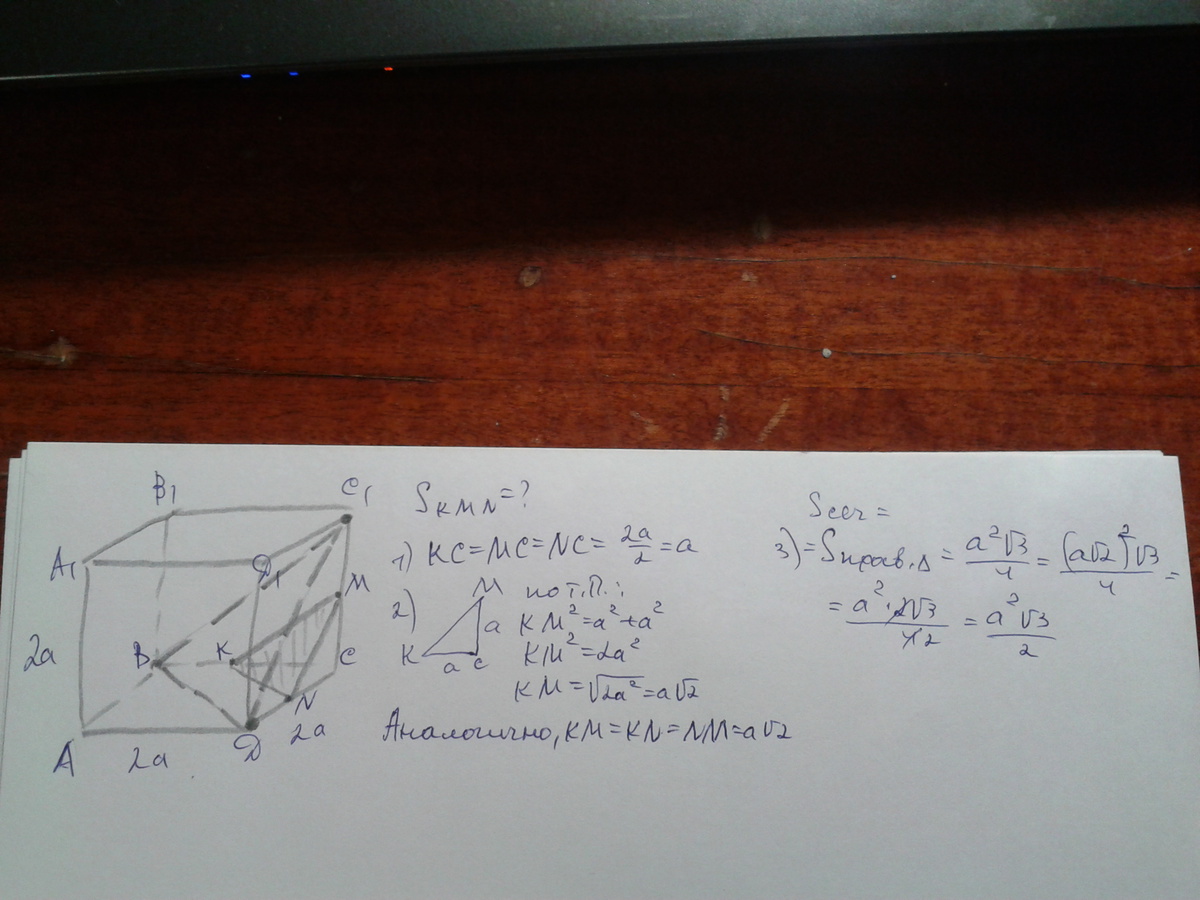 B₁
C₁
A₁
Д₁
M
2a
B
K
C
N
A
2a
Д
2a
S_KMN = ?
1) KC = MC = NC = 2a/2 = a
2)
M
K
a
a
C
по т.П.:
KM² = a² + a²
KM² = 2a²
KM = √2a² = a√2
Аналогично, KM = KN = NM = a√2
Sсеч =
3) = Sправ.Δ = a²√3/4 = (a√2)²√3/4 =
= a²·2√3/42 = a²√3/2